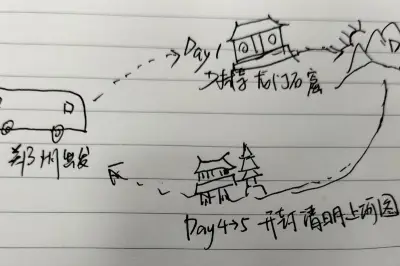 Day1
少林寺 龙门石窟
郑州出发
Day4→5 开封清明上河园